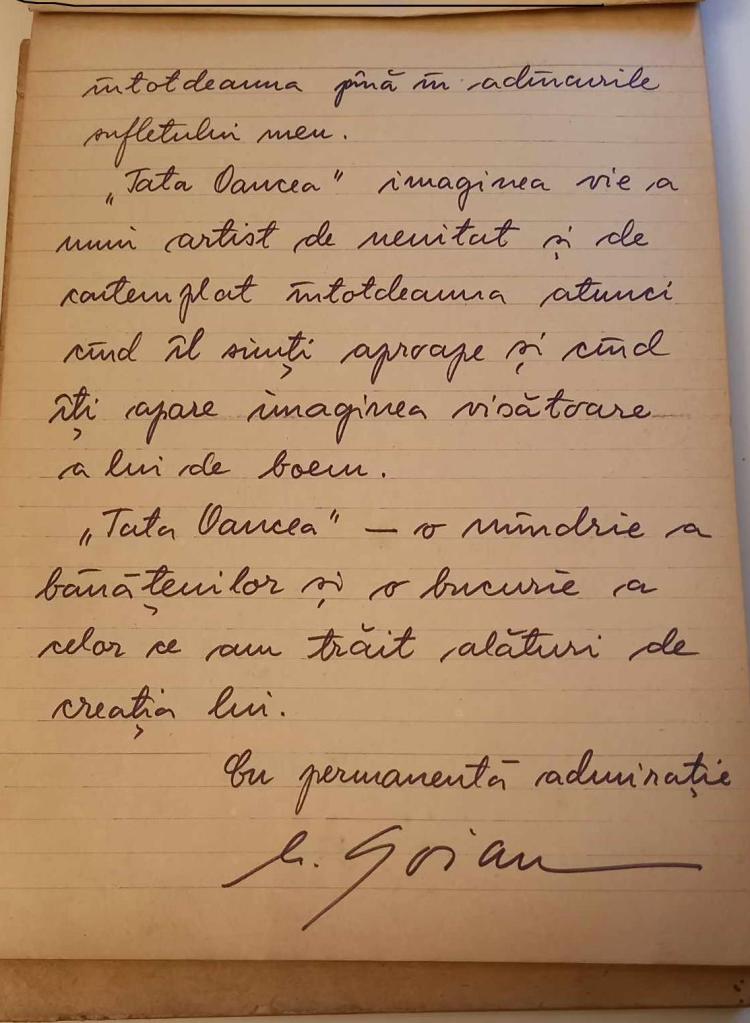 întotdeauna pînă în adîncurile
sufletului meu.
„Tata Oancea" imaginea vie a
unui artist de neuitat și de
contemplat întotdeauna atunci
cînd îl simți aproape și cînd
îți apare imaginea visătoare
a lui de boem.
„Tata Oancea" — o mîndrie a
bănățenilor și o bucurie a
celor ce am trăit alături de
creația lui.
Cu permanentă admirație
G. Goian